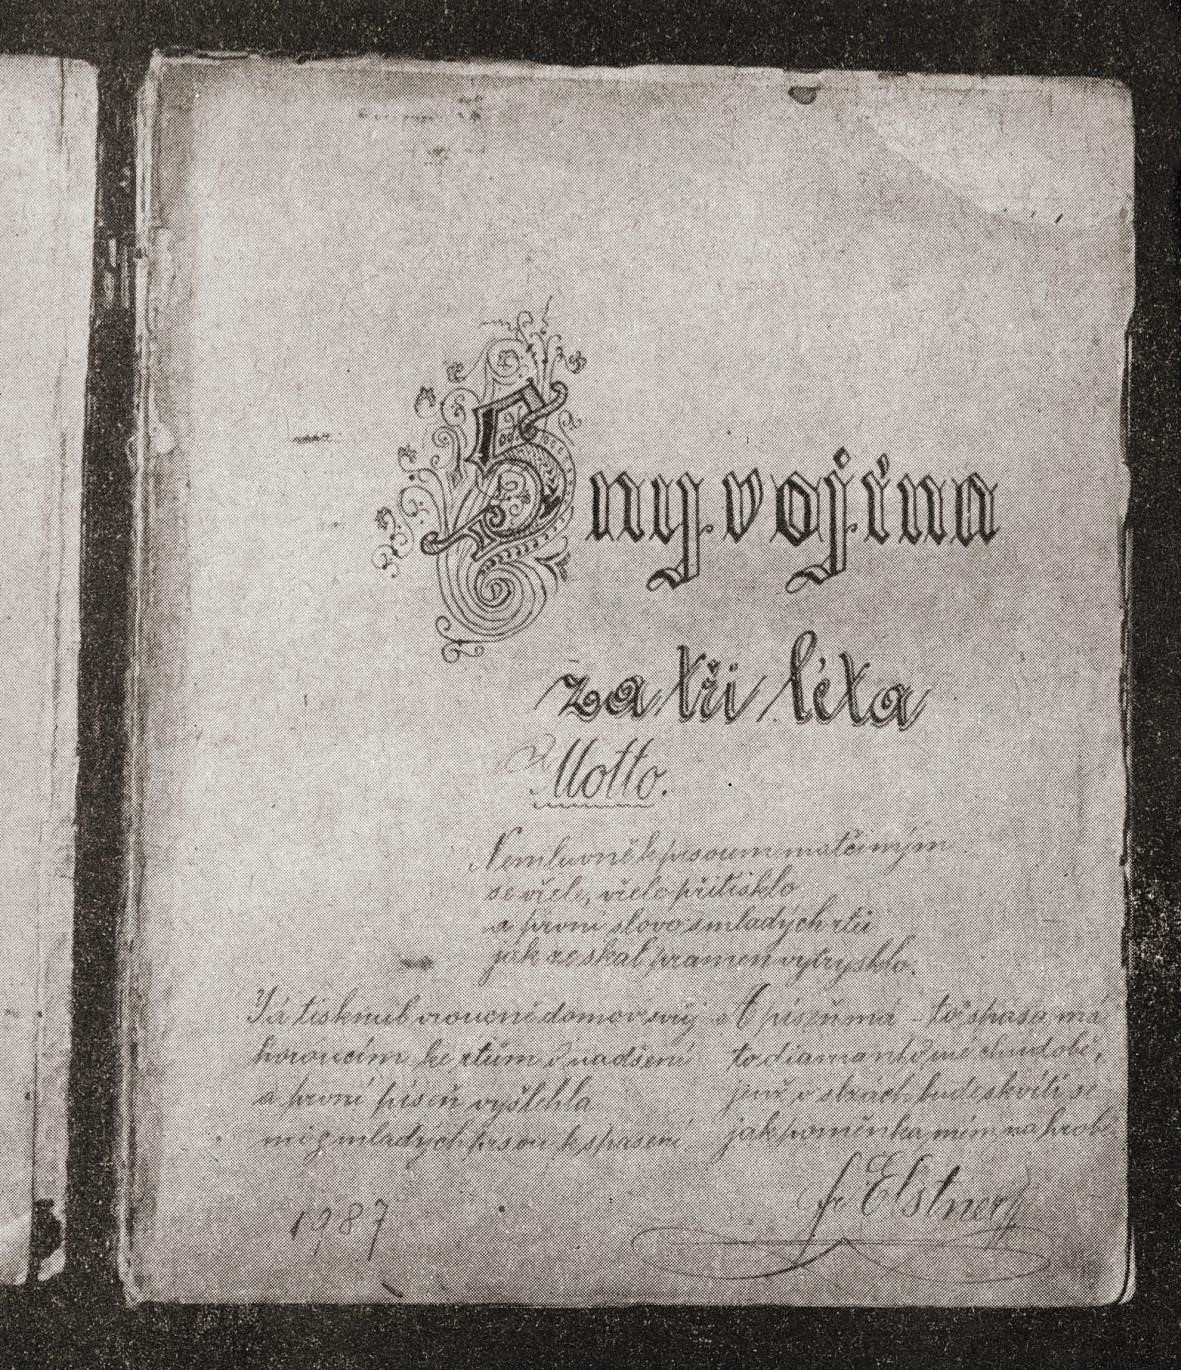 Sny vojína
za tři léta
Motto.
Nemluvně k prsoum matčiným
se vřele, vřele přitisklo
a první slovo s mladých rtů
jak ze skal pramen vytrysklo.
Já tisknul vroucně domov svůj
horoucím ke rtům v nadšení
a první píseň vyšlehla
mých mladých prsou k spasení.
A píseň má – to spása má
to diamant v mé chudobě,
jenž v slzách bude skvíti se
jak poměnka mém na hrobě.
Fr Elstner
1987